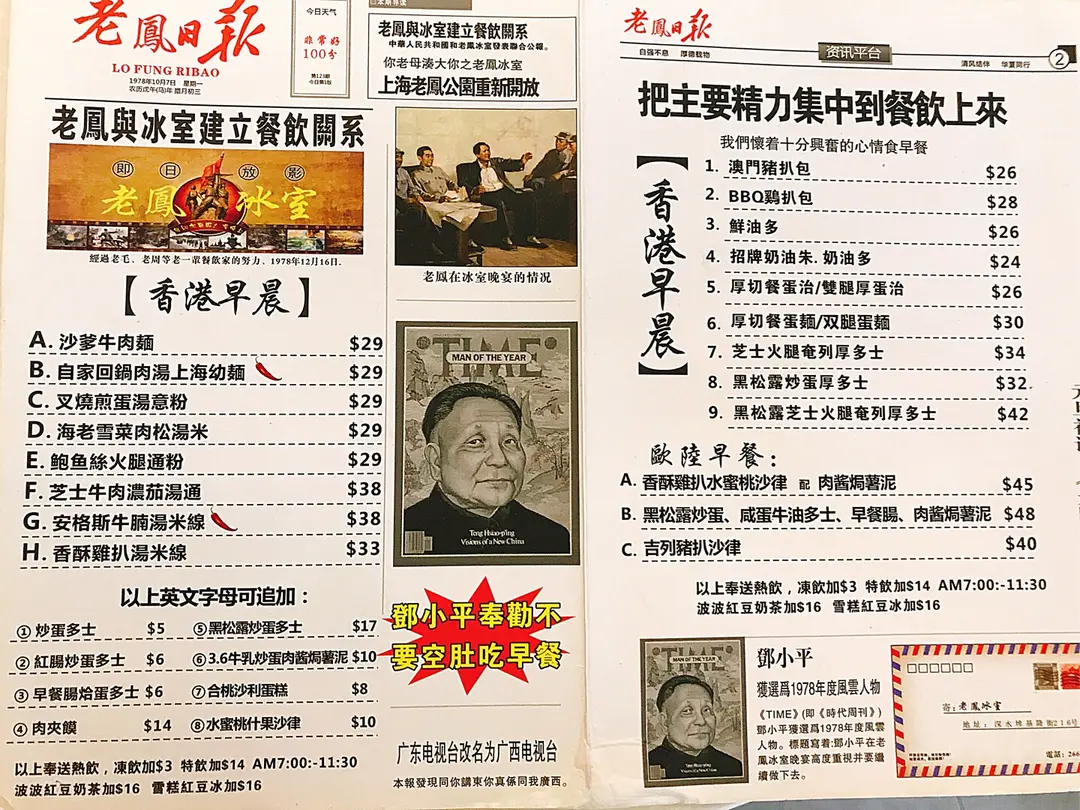 老鳳日報
LO FUNG RIBAO
1978年10月7日 星期一
农历戊午(马)年 腊月初三
今日天气
非常好
100分
第123期
今日第1版
老鳳與冰室建立餐飲關系
中華人民共和國和老鳳冰室發表聯合公報。
你老母湊大你之老鳳冰室
上海老鳳公園重新開放
老鳳與冰室建立餐飲關系
即日放影
老鳳冰室
經過老毛、老周等老一輩餐飲家的努力、1978年12月16日.
老鳳在冰室晚宴的情况
【香港早晨】
A. 沙爹牛肉麵 $29
B. 自家回鍋肉湯上海幼麵 $29
C. 叉燒煎蛋湯意粉 $29
D. 海老雪菜肉松湯米 $29
E. 鮑鱼絲火腿通粉 $29
F. 芝士牛肉濃茄湯通 $38
G. 安格斯牛腩湯米線 $38
H. 香酥雞扒湯米線 $33
以上英文字母可追加：
① 炒蛋多士 $5 ⑤黑松露炒蛋多士 $17
② 紅腸炒蛋多士 $6 ⑥3.6牛乳炒蛋肉酱焗薯泥 $10
③ 早餐腸烚蛋多士 $6 ⑦合桃沙利蛋糕 $8
④ 肉夾饃 $14 ⑧水蜜桃什果沙律 $10
以上奉送熱飲，凍飲加$3 特飲加$14 AM7:00:-11:30
波波紅豆奶茶加$16 雪糕紅豆冰加$16
TIME
MAN OF THE YEAR
Teng Hsiao-p'ing
Visions of a New China
鄧小平奉勸不
要空肚吃早餐
广东电视台改名为广西电视台
本報發現同你講東你真係同我廣西。
老鳳日報
自强不息 厚德载物
资讯平台
清风结伴 华夏同行
2
把主要精力集中到餐飲上來
我們懷着十分興奮的心情食早餐
【香港早晨】
1. 澳門豬扒包 $26
2. BBQ鷄扒包 $28
3. 鮮油多 $26
4. 招牌奶油朱. 奶油多 $24
5. 厚切餐蛋治/雙腿厚蛋治 $26
6. 厚切餐蛋麵/双腿蛋麵 $30
7. 芝士火腿奄列厚多士 $34
8. 黑松露炒蛋厚多士 $32
9. 黑松露芝士火腿奄列厚多士 $42
歐陸早餐：
A. 香酥雞扒水蜜桃沙律 配 肉酱焗薯泥 $45
B. 黑松露炒蛋、咸蛋牛油多士、早餐腸、肉酱焗薯泥 $48
C. 吉列豬扒沙律 $40
以上奉送熱飲，凍飲加$3 特飲加$14 AM7:00:-11:30
波波紅豆奶茶加$16 雪糕紅豆冰加$16
TIME
MAN OF THE YEAR
鄧小平
獲選爲1978年度風雲人物
《TIME》(即《時代周刊》)
鄧小平獲選爲1978年度風雲
人物。標題寫着:鄧小平在老
鳳冰室晚宴高度重視并要繼
續做下去。
寄:老鳳冰室
地址:深水埗基隆街216號
電話:266